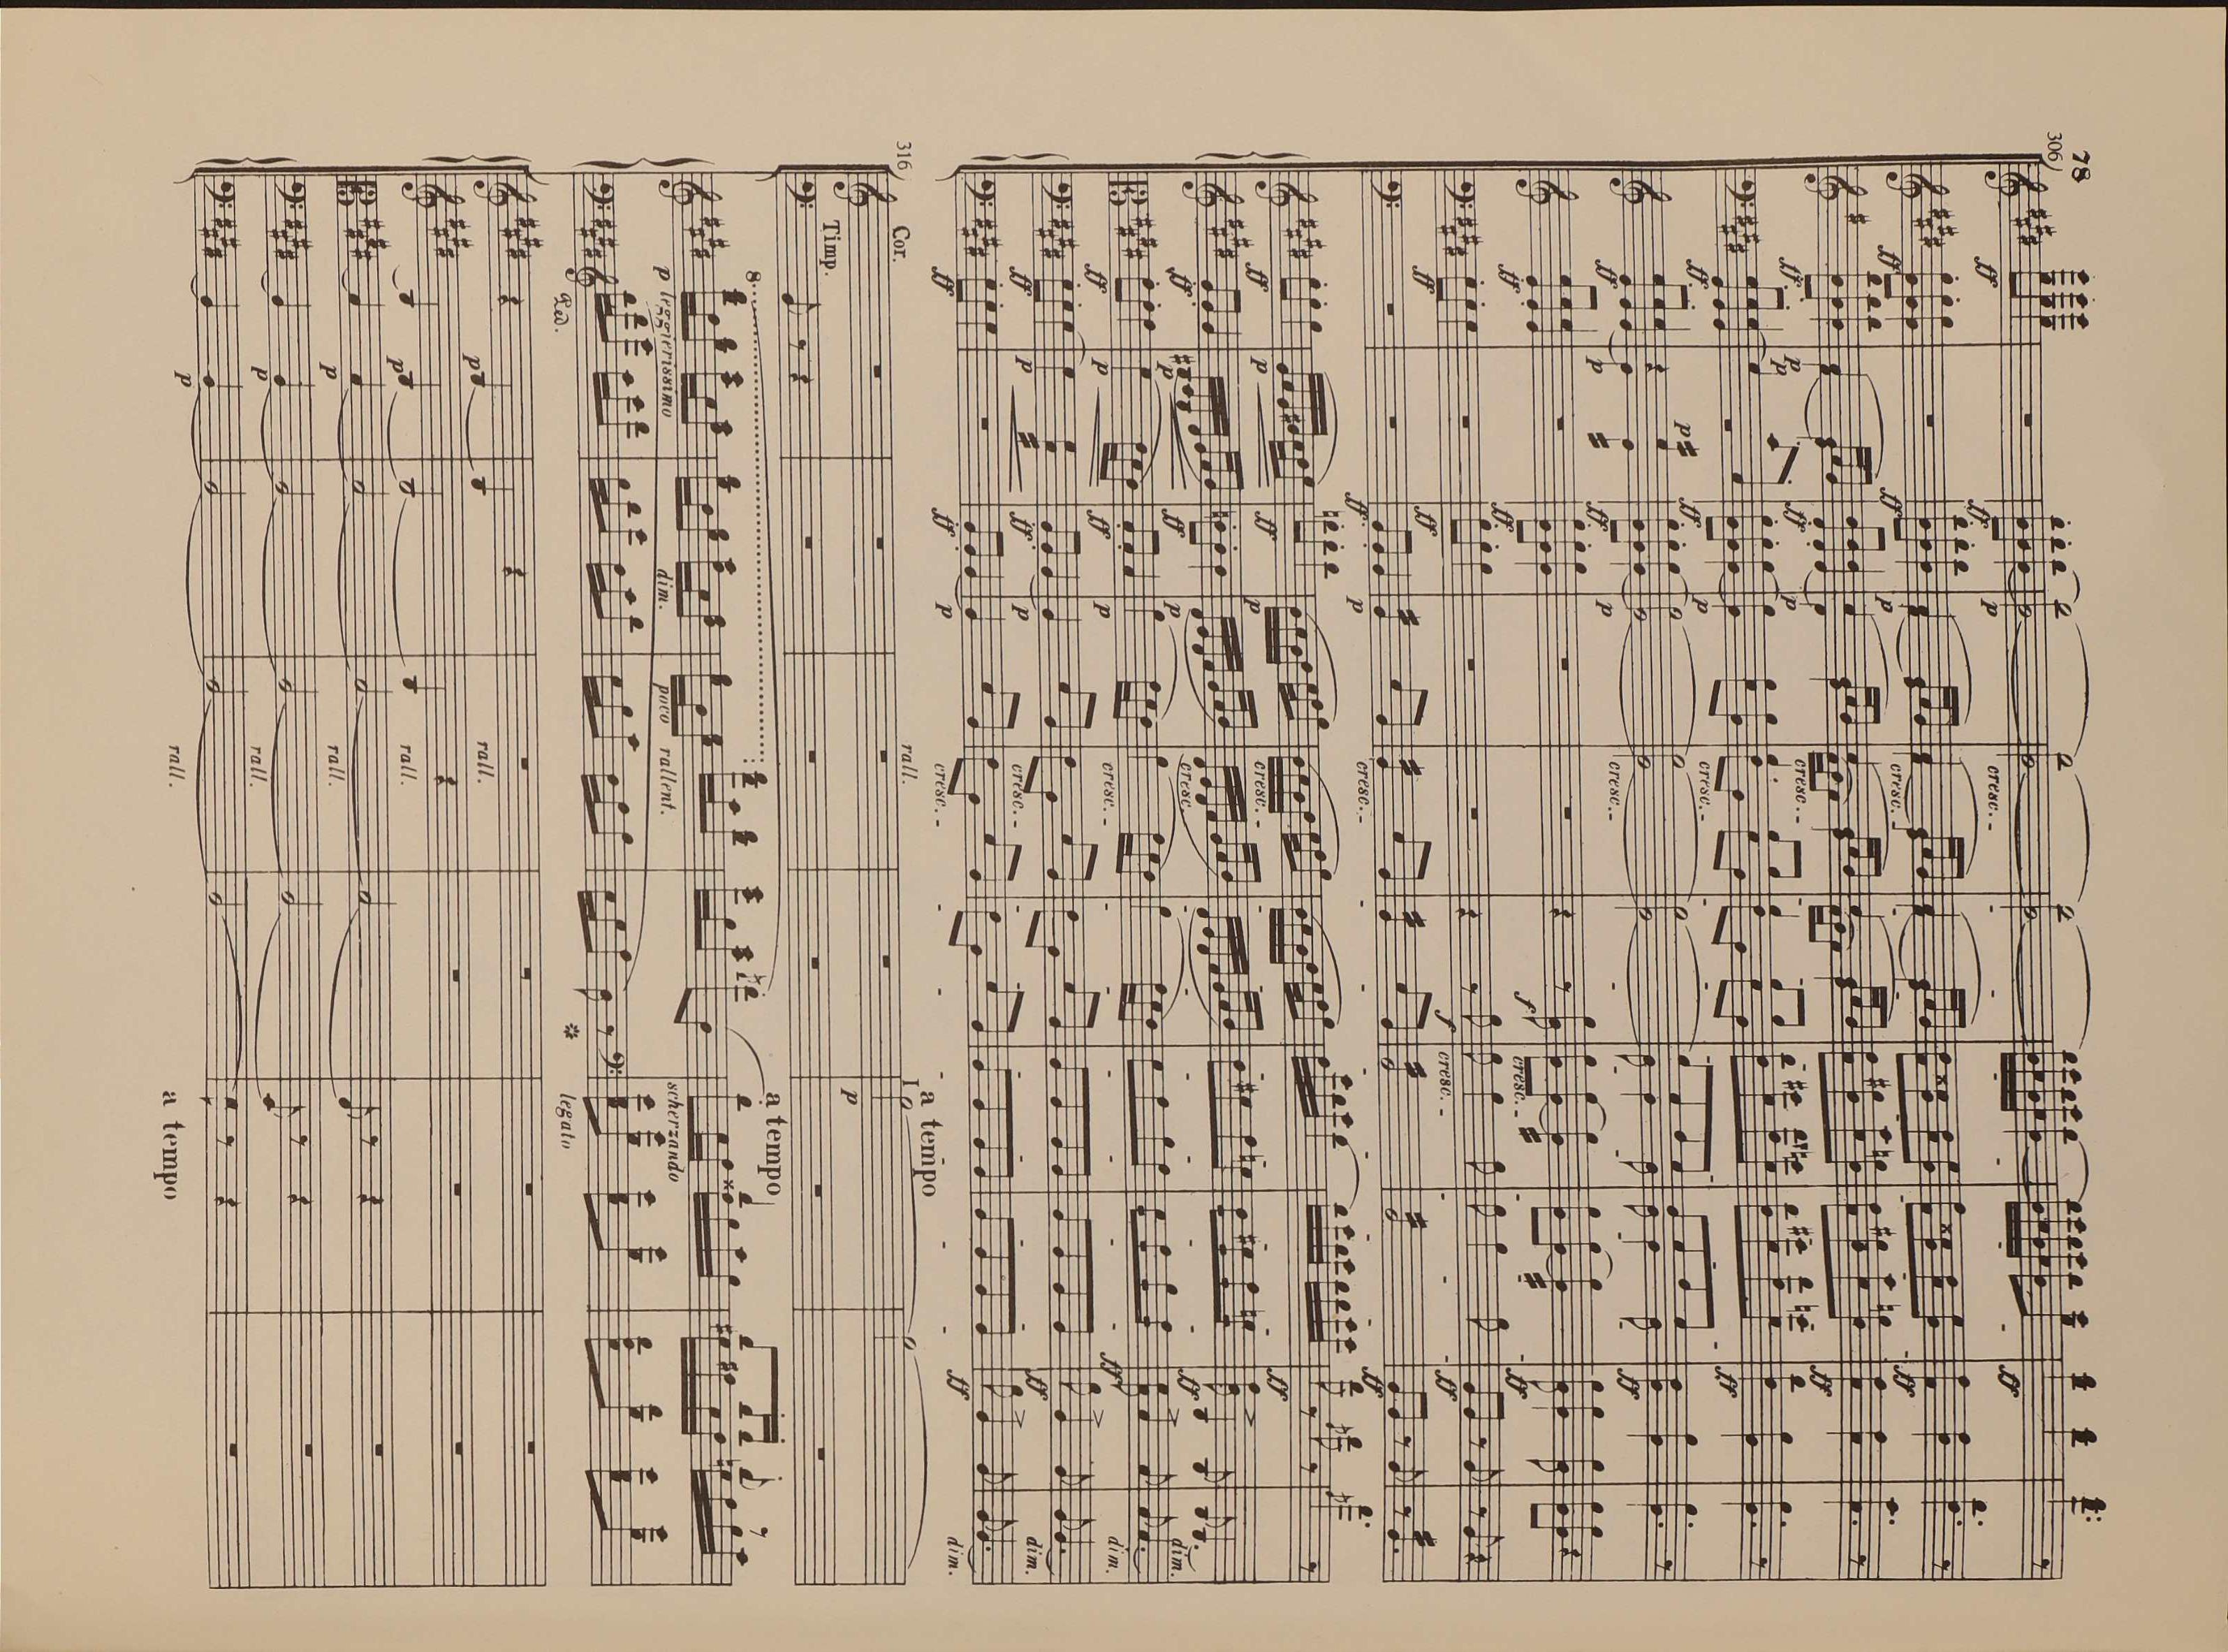 78
306
ff ff ff ff ff ff ff
p p p p p
ff ff ff ff ff ff ff ff
p p p p p p
cresc. - cresc. - cresc. - cresc. - cresc. - cresc. -
f f
cresc. - cresc. -
ff ff ff ff ff ff ff ff
ff ff ff ff ff
p p p p
ff ff ff ff ff
p p p p p
cresc. - cresc. - cresc. - cresc. - cresc. -
ff ff ff ff ff
dim. dim. dim. dim.
316
rall.
a tempo
Cor.
I
p
Timp.
8
a tempo
p leggierissimo
dim.
poco rallent.
scherzando
Ped.
legato
p
rall.
p
rall.
p
rall.
p
rall.
p
rall.
a tempo